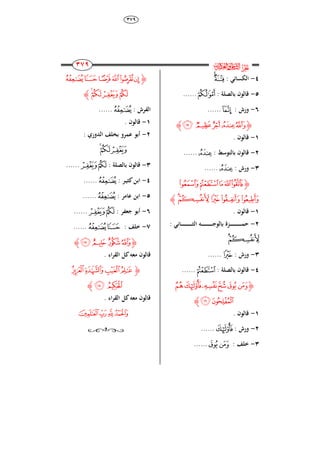 ٣٧٩
٣٧٩
٤- الكسائي : فِتْنَةٌ
٥- قالون بالصلة : أَمْوَٰلُكُمْ ......
٦- ورش : إِنَّمَآ ......
﴿ وَٱللَّهُ عِندَهُۥٓ أَجْرٌ عَظِيمٌ ﴾
١- قالون .
٢- قالون بالتوسط : عِندَهُۥٓ ......
٣- ورش : عِندَهُۥٓ ......
﴿ فَٱتَّقُوا۟ ٱللَّهَ مَا ٱسْتَطَعْتُمْ وَٱسْمَعُوا۟
وَأَطِيعُوا۟ وَأَنفِقُوا۟ خَيْرًا لِّأَنفُسِكُمْ ﴾
١- قالون .
٢- حمزة بالوجه الثاني :
لِّأَنفُسِكُمْ
٣- ورش : خَيْرًا ......
٤- قالون بالصلة : ٱسْتَطَعْتُمْ ......
﴿ وَمَن يُوقَ شُحَّ نَفْسِهِۦ فَأُو۟لَٰٓئِكَ هُمُ
ٱلْمُفْلِحُونَ ﴾
١- قالون .
٢- ورش : فَأُو۟لَٰٓئِكَ ......
٣- خلف : وَمَن يُوقَ ......
﴿ إِن تُقْرِضُوا۟ ٱللَّهَ قَرْضًا حَسَنًا يُضَٰعِفْهُ
لَكُمْ وَيَغْفِرْ لَكُمْ ﴾
الفرش : يُضَٰعِفْهُ ......
١- قالون .
٢- أبو عمرو بخلف الدوري :
وَيَغْفِرْ لَكُمْ
٣- قالون بالصلة : لَكُمْ وَيَغْفِرْ ......
٤- ابن كثير : يُضَعِّفْهُ ......
٥- ابن عامر : يُضَعِّفْهُ ......
٦- أبو جعفر : لَكُمْ وَيَغْفِرْ ......
٧- خلف : حَسَنًا يُضَٰعِفْهُ ......
﴿ وَٱللَّهُ شَكُورٌ حَلِيمٌ ﴾
قالون معه كل القراء .
﴿ عَٰلِمُ ٱلْغَيْبِ وَٱلشَّهَٰدَةِ ٱلْعَزِيزُ
ٱلْحَكِيمُ ﴾
قالون معه كل القراء .
وَٱلْحَمْدُ لِلَّهِ رَبِّ ٱلْعَٰلَمِينَ